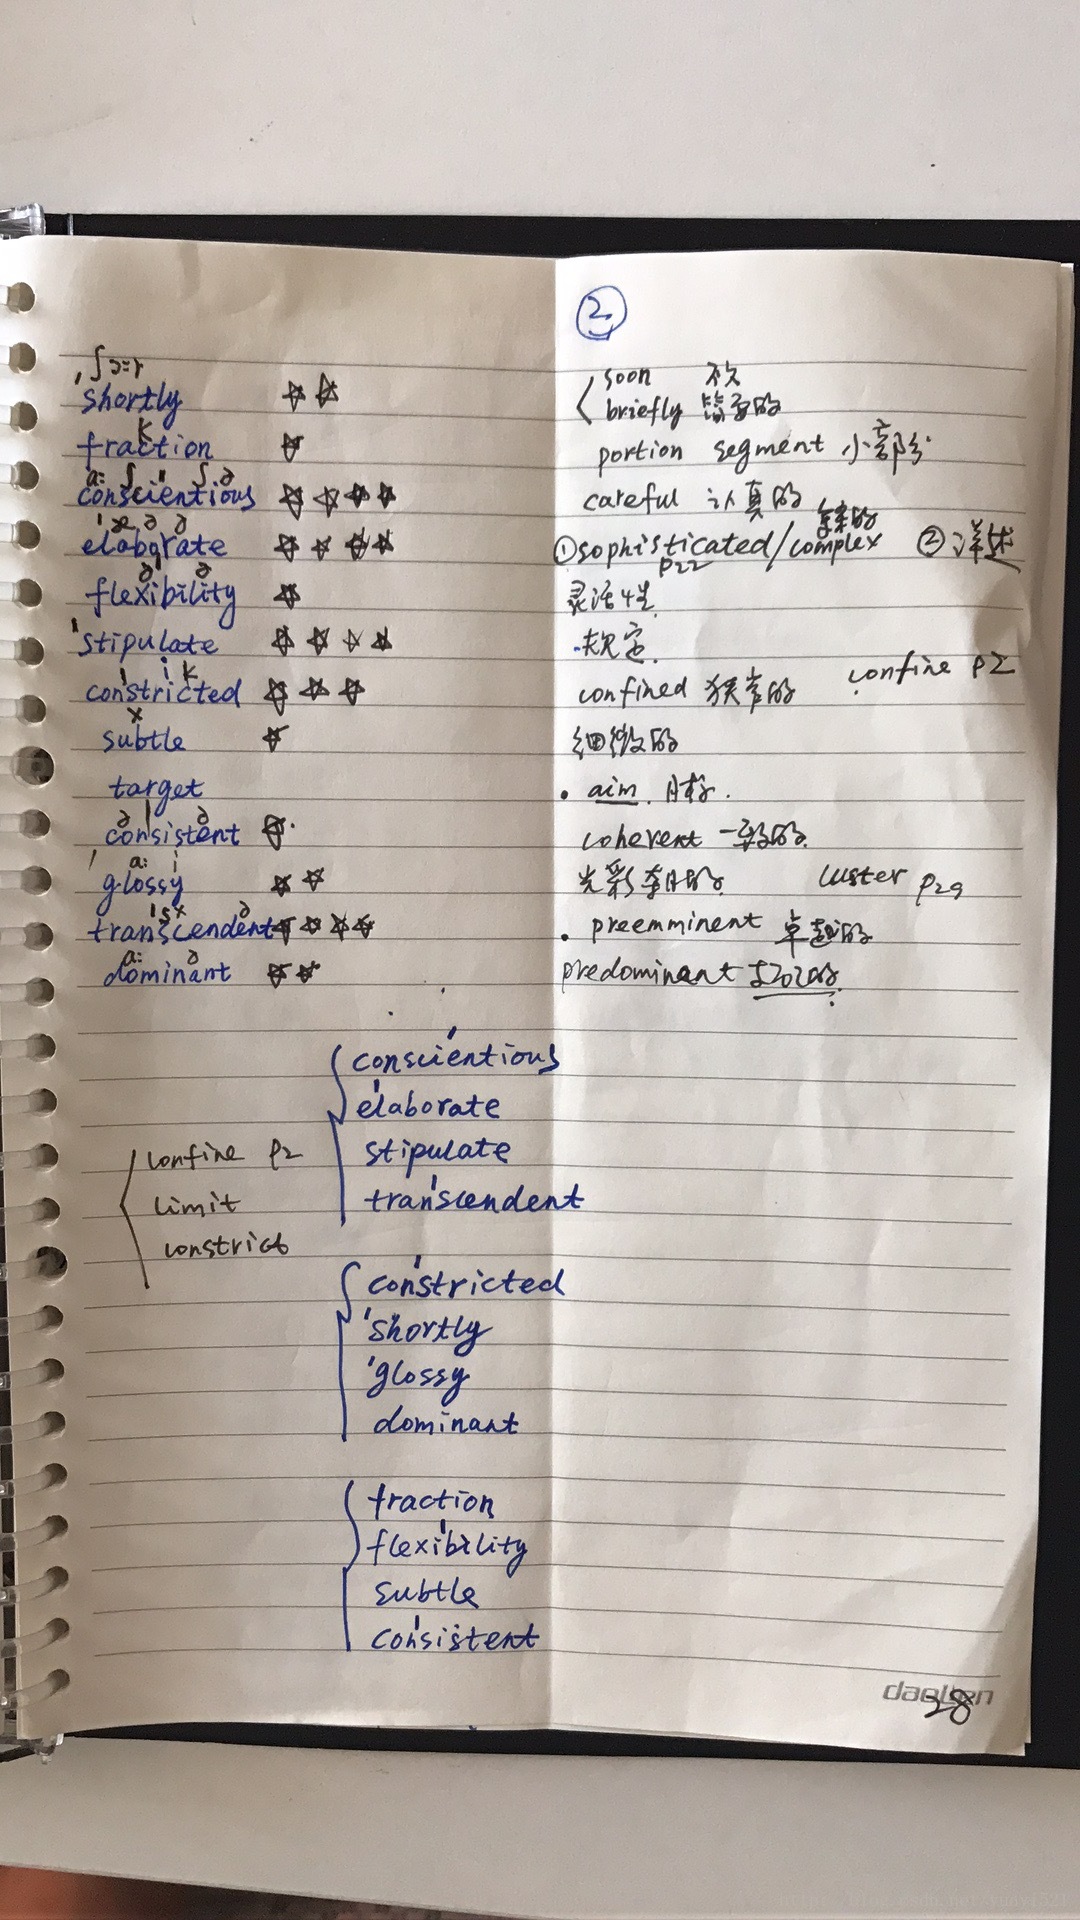 ②
shortly ☆☆ soon 不久
briefly 简要的
fraction ☆ portion segment 小部分
conscientious ☆☆☆☆ careful 认真的
elaborate ☆☆☆☆ ①sophisticated/complex 复杂的 ②详述
p22
flexibility ☆ 灵活性
stipulate ☆☆☆☆ 规定
constricted ☆☆☆ confined 狭窄的 confine p2
subtle ☆ 细微的
target · aim 目标
consistent ☆ coherent 一致的
glossy ☆☆ 光彩夺目的 luster p29
transcendent ☆☆☆☆ · preemminent 卓越的
dominant ☆☆ predominant 主要的
conscientious
elaborate
confine p2 stipulate
limit transcendent
constrict
constricted
shortly
glossy
dominant
fraction
flexibility
subtle
consistent
28